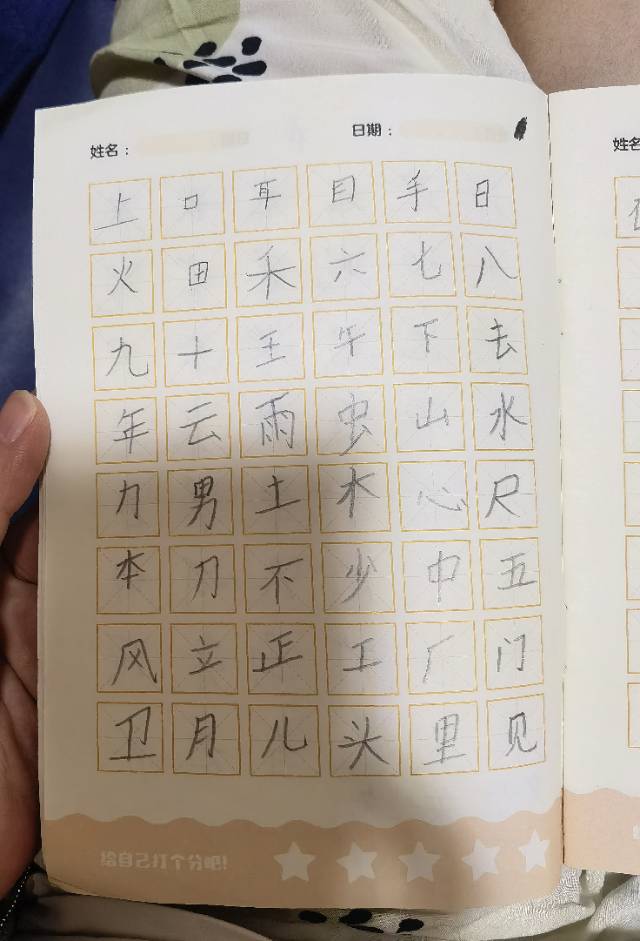 姓名： 日期：
上 口 耳 目 手 日
火 田 禾 六 七 八
九 十 王 午 下 去
年 云 雨 虫 山 水
力 男 土 木 心 尺
本 刀 不 少 中 五
风 立 正 工 厂 门
卫 月 儿 头 里 见
给自己打个分吧!
姓名